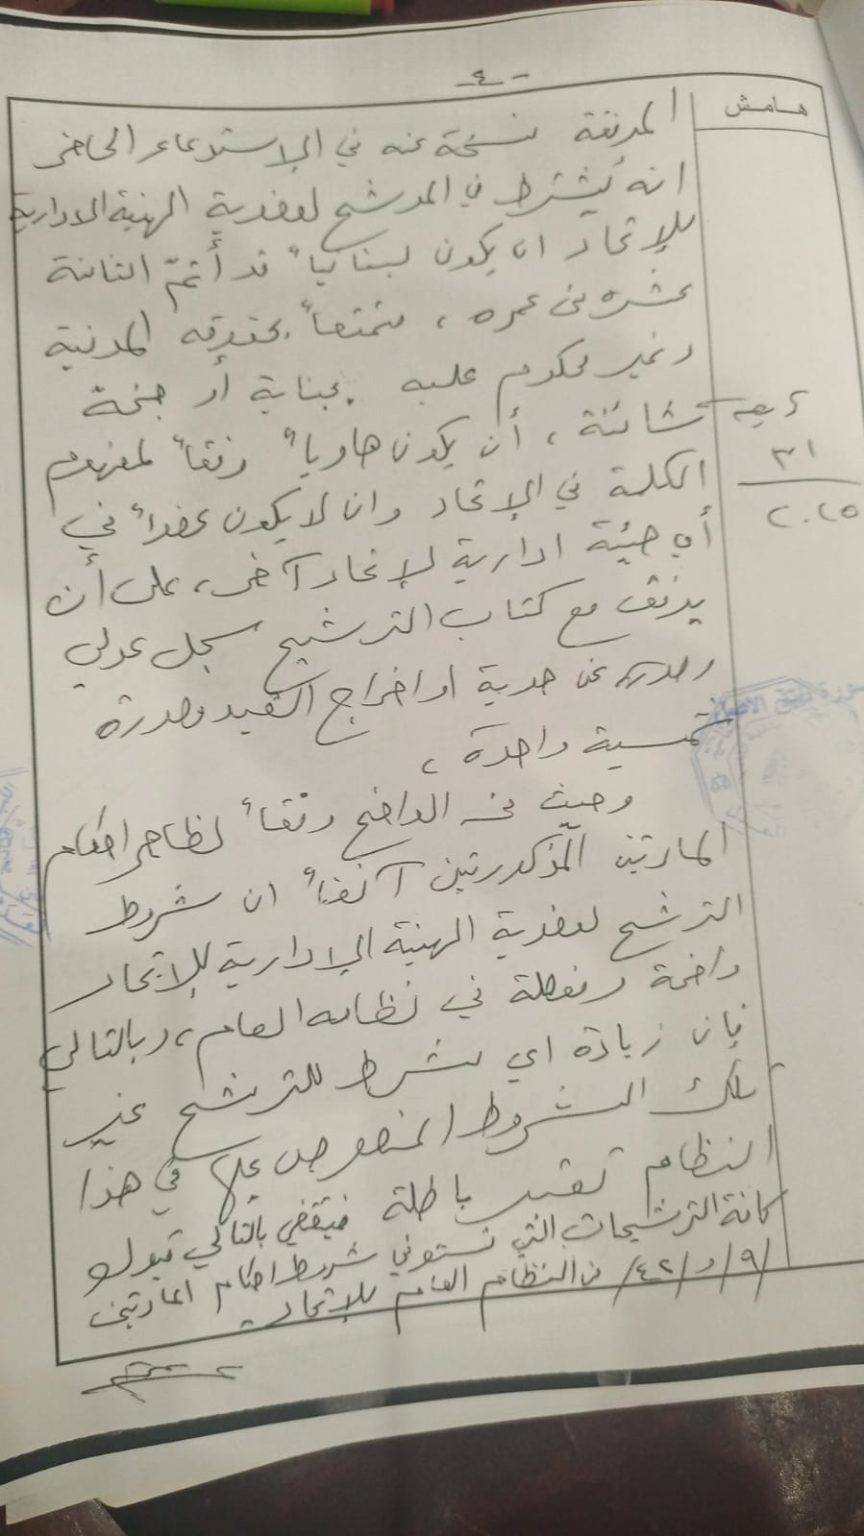 - ٤ -
هامش
المرفقة نسخة عنه في الاستدعاء الحاضر
انه يُشترط في المرشح لعضوية الهيئة الادارية
للإتحاد ان يكون لبنانياً قد أتمّ الثامنة
عشره من عمره ، متمتعاً بحقوقه المدنية
وغير محكوم عليه بجناية أو جنحة
شائنة ، أن يكون هاوياً وفقاً لمفهوم
الكلمة في الإتحاد وان لا يكون عضواً في
أي هيئة ادارية لإتحاد آخر ، على أن
يرفق مع كتاب الترشيح سجل عدلي
وصورته عن هوية او اخراج القيد وصورة
شمسية واحدة ،
وحيث من الواضح وفقاً لظاهر احكام
المادتين المذكورتين آنفاً ان شروط
الترشح لعضوية الهيئة الإدارية للإتحاد
واضحة ومفصلة في نظامه العام ، وبالتالي
فإن زيادة اي شرط للترشح غير
تلك الشروط المنصوص عليها في هذا
النظام تعتبر باطلة فيقتضي بالتالي قبول
كافة الترشيحات التي تستوفي شروط احكام المادتين
/٩/ و /٤٢/ من النظام العام للإتحاد
٣١
٢٠٢٥